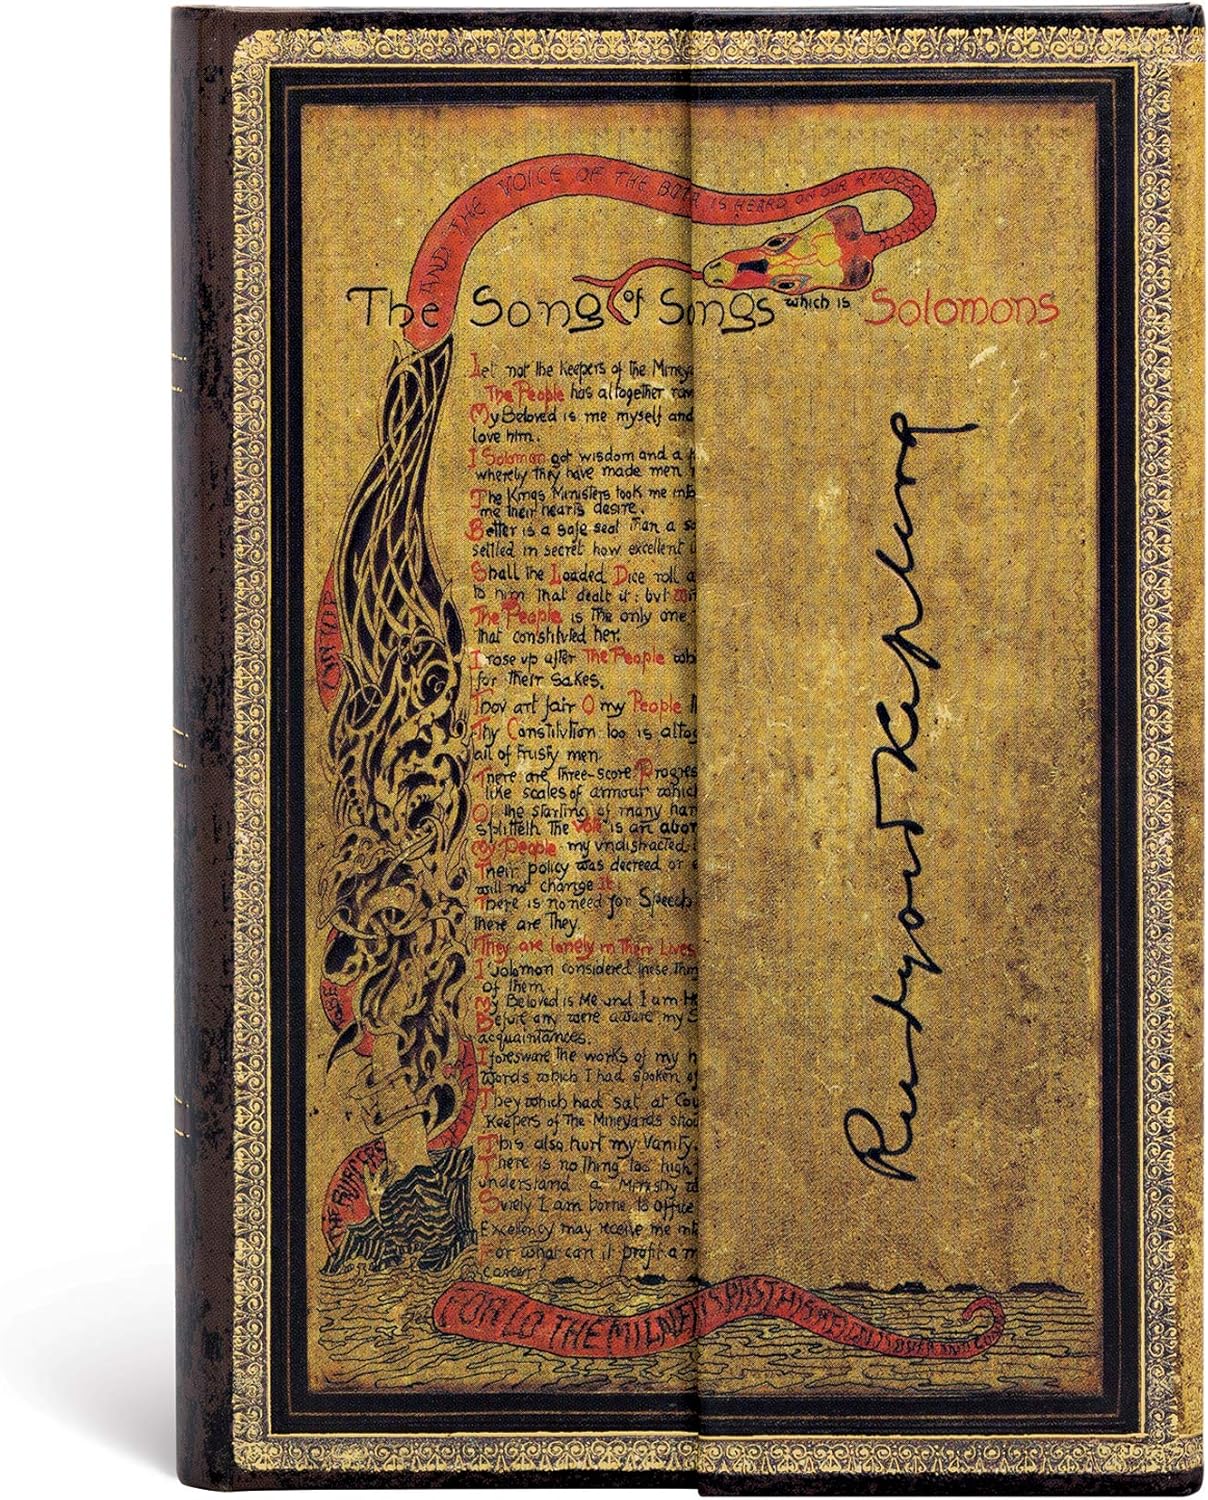 AND THE VOICE OF THE BOTA IS HEARD ON OUR
The Song of Songs which is Solomons
Let not the Keepers of the Mineya
The People has altogether
My Beloved is me myself and
love him.
I Solomon got wisdom and a
whereby they have made men
The Kings Ministers took me into
me their hearts desire.
Better is a safe seat than a
settled in secret how excellent
Shall the Loaded Dice roll a
to him that dealt it: but
The People is the only one
that constituted her.
I rose up after The People
for their sakes.
Thou art fair O my People
Thy Constitution too is altog
all of trusty men
There are three-score Progres
like scales of armour which
Of the starting of many har
splitteth the Vote is an abor
my People my undistracted
Their policy was decreed or
will not change it
There is no need for Speech
there are They
They are lonely in Their Lives
I Solomon considered these
of them
My Beloved is Me and I am
Before any were aware my S
acquaintances.
I foresware the works of my h
Words which I had spoken of
They which had sat at Cou
Keepers of The Mineyards shou
This also hurt my Vanity.
There is no Thing too high
understand a Ministry
Surely I am borne to office
Excellency may receive me
For what can it profit a m
career
THE BUMPERS
FOR LO THE MILNER IS PAST HIS REIGN IS OVER AND GONE
Rudyard Kipling